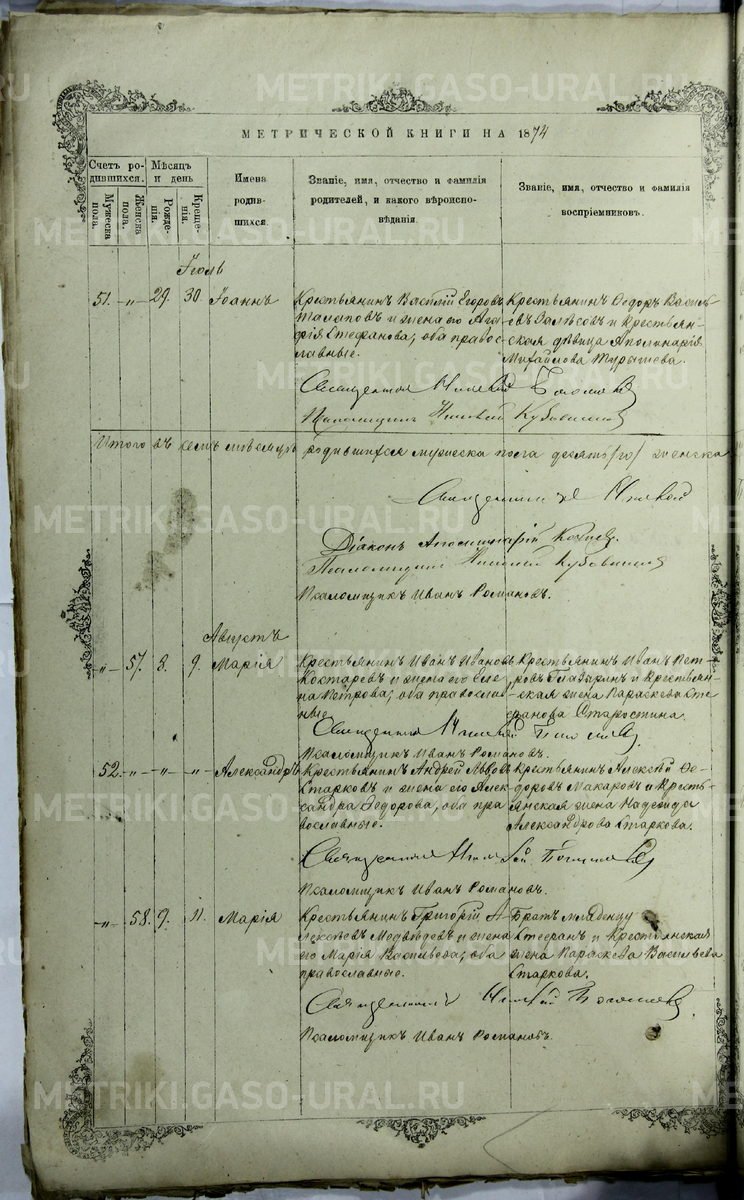 МЕТРИЧЕСКОЙ КНИГИ НА 1874
Счетъ родившихся.
Мужеска пола.
Женска пола.
Мѣсяцъ и день
Рожденія.
Крещенія.
Имена родившихся.
Званіе, имя, отчество и фамилія родителей, и какого вѣроисповѣданія.
Званіе, имя, отчество и фамилія воспріемниковъ.
Іюль
51. —„— 29. 30. Іоаннъ
Крестьянинъ Василій Егоровъ
и жена его Ага-
фія Стефанова; оба правос-
лавные.
Крестьянинъ Ѳедоръ Василь-
евъ и крестьян-
ская дѣвица Аполинарія
Михайлова Турышева.
Священникъ
Псаломщикъ
Итого въ семъ мѣсяцѣ родившихся мужеска пола десять (10) женска
Священникъ
Діаконъ
Псаломщикъ
Псаломщикъ Иванъ Романовъ.
Августъ
—„— 57. 8. 9. Марія
Крестьянинъ Иванъ Ивановъ
Костаревъ и жена его Еле-
на Петрова; оба православ-
ные.
Крестьянинъ Иванъ Пет-
ровъ и крестьян-
ская жена Параскева Сте-
фанова Старостина.
Священникъ
Псаломщикъ Иванъ Романовъ.
52. —„— —„— „ Александръ
Крестьянинъ Андрей Львовъ
Старковъ и жена его Алек-
сандра Ѳедорова, оба пра-
вославные.
Крестьянинъ Алексѣй Ѳе-
доровъ Макаровъ и кресть-
янская жена Надежда
Александрова Старкова.
Священникъ
Псаломщикъ Иванъ Романовъ.
—„— 58. 9. 11. Марія
Крестьянинъ Григорій А-
лексѣевъ Медвѣдевъ и жена
его Марія Васильева; оба
православные.
Братъ младенцу
Стефанъ и крестьянская
жена Параскева Васильева
Старкова.
Священникъ
Псаломщикъ Иванъ Романовъ.
METRIKI.GASO-URAL.RU